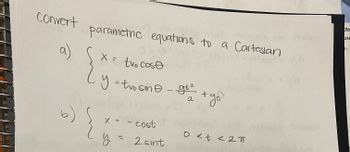 Convert parametric equations to a Cartesian
a) { x = tv₀ cosθ
y = tv₀ sinθ - gt²/2 + y₀
b) { x = - cost
y = 2 sint 0 < t < 2π